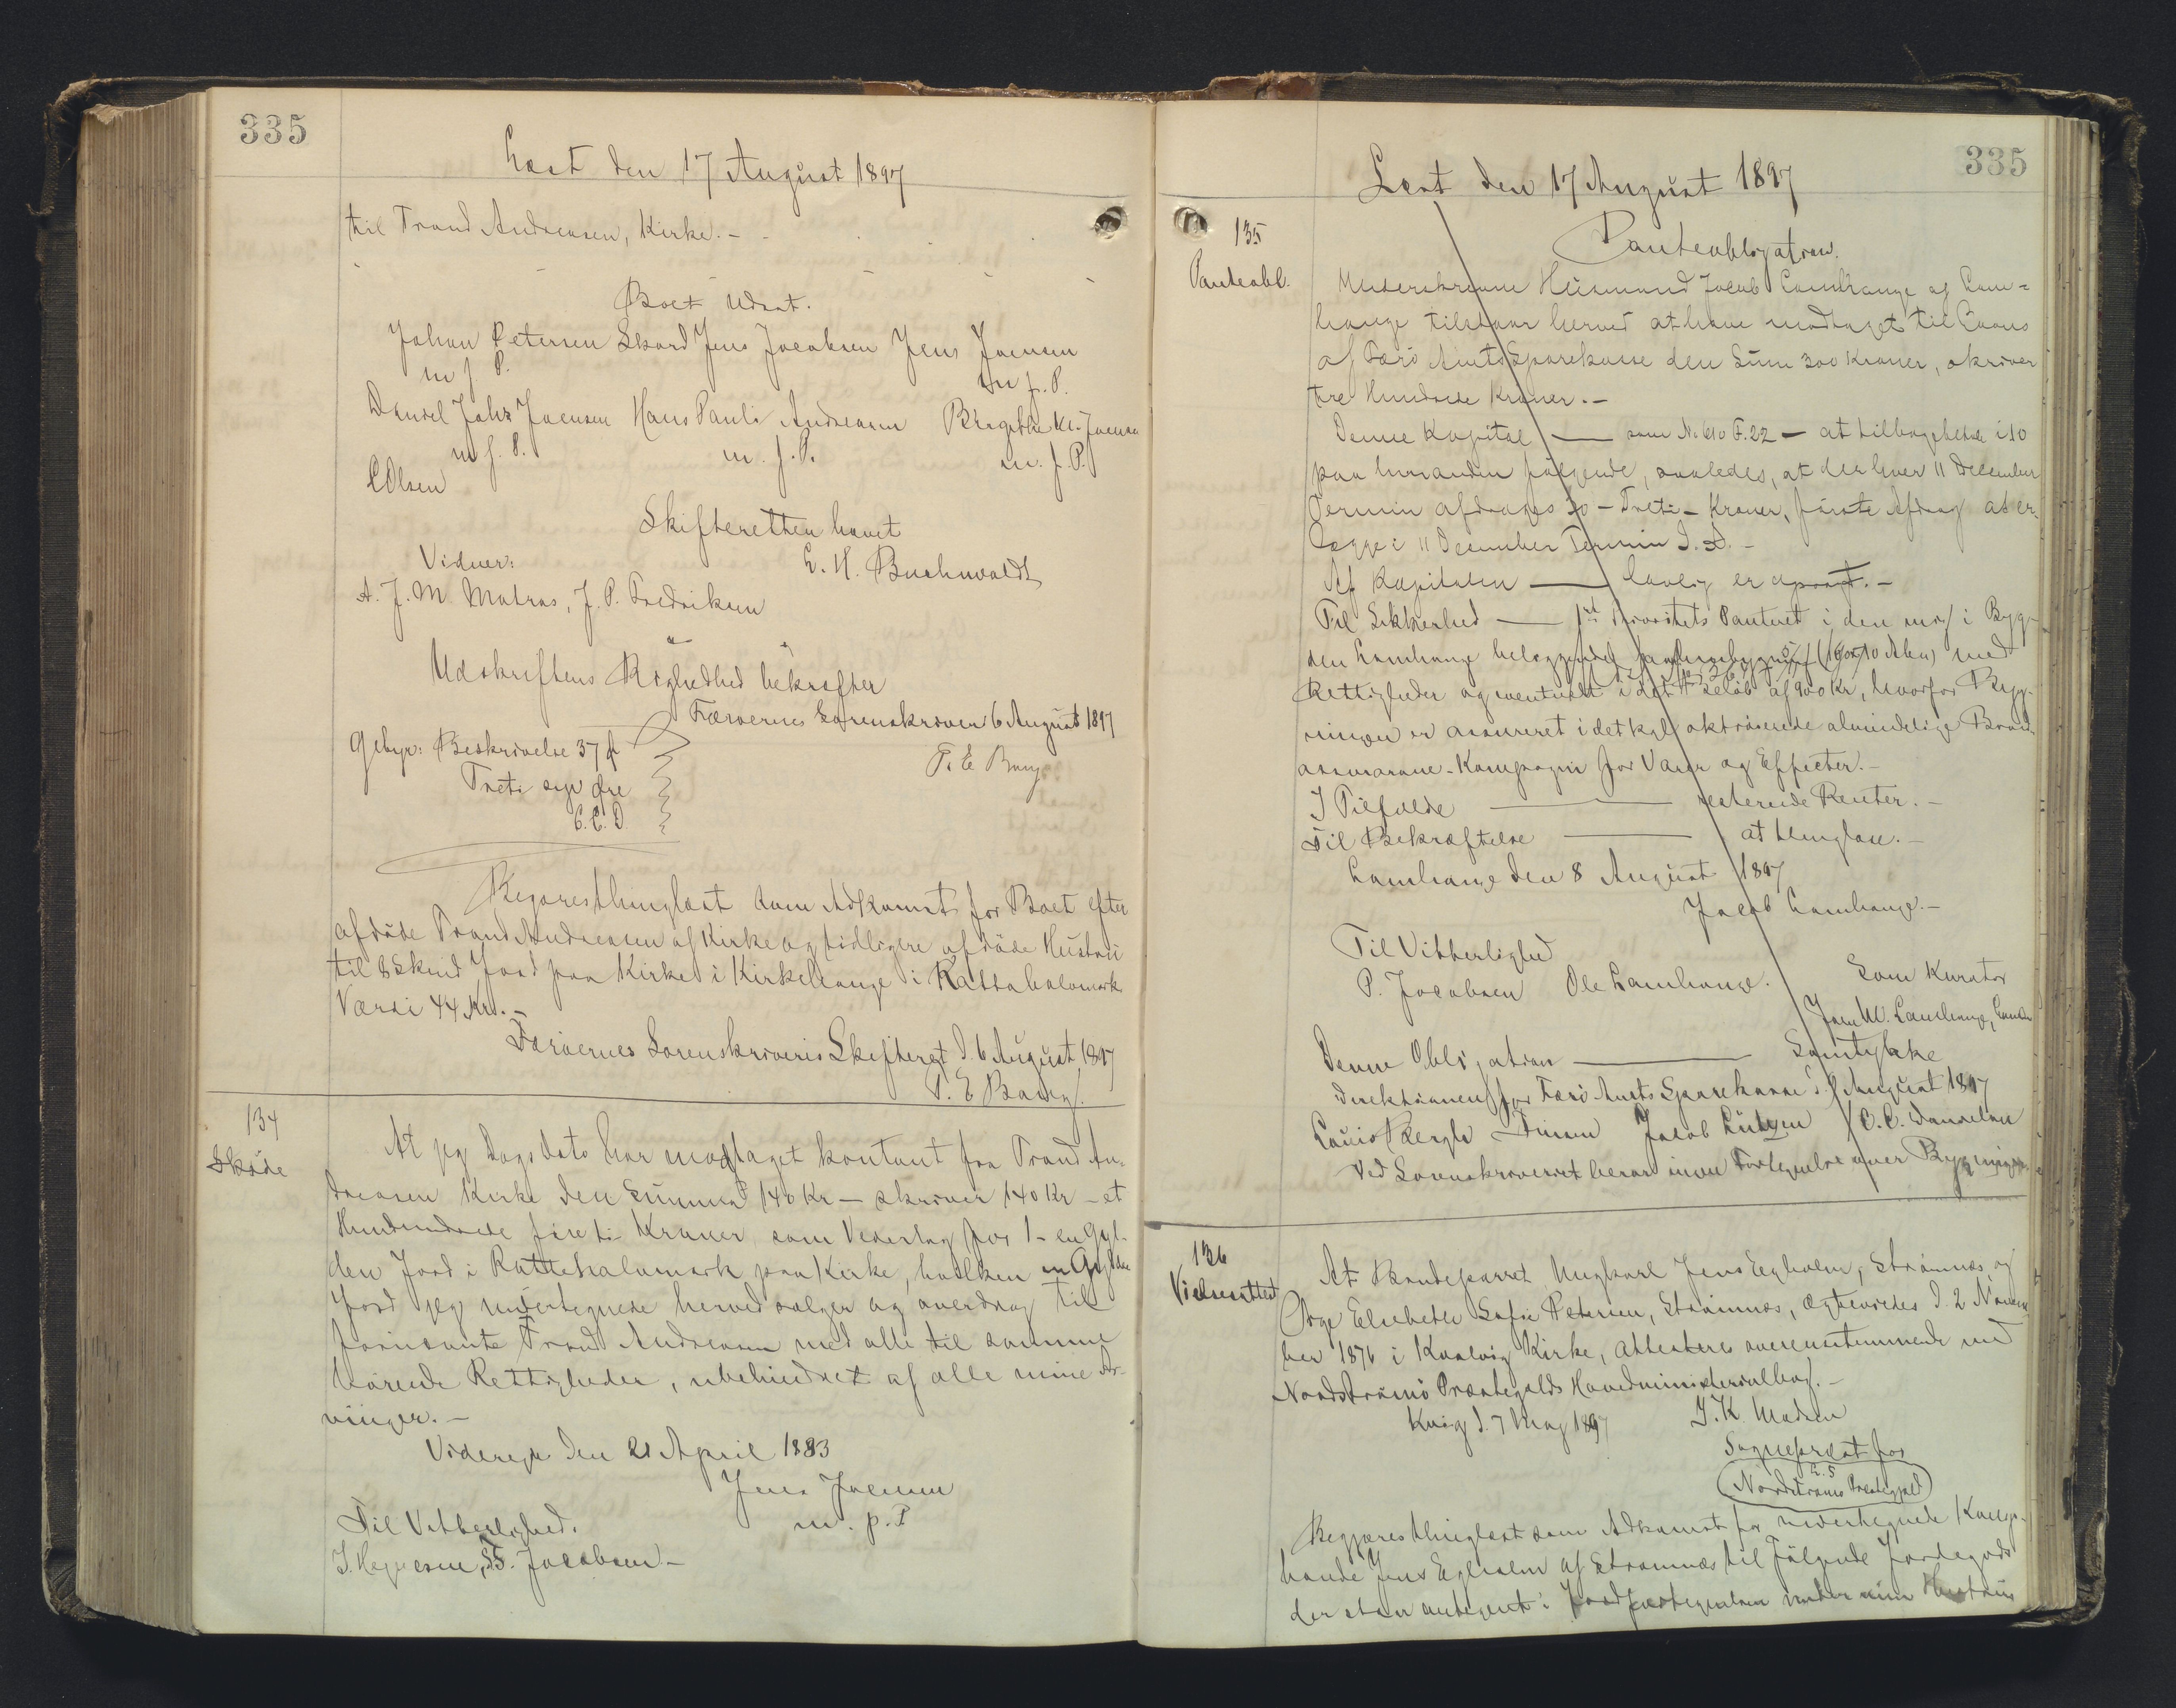 335
Læst den 17 August 1897
til Trond Andreasen, Kirke. -
Boet udsat.
Johan Petersen Skord Jens Jacobsen Jens Joensen
m. f. P. m. f. P.
Daniel Johs Joensen Hans Pauli Andreasen Birgithe Kl. Joensen
m. f. P. m. f. P. m. f. P.
C Olsen
Skifteretten hævet
Vidner: C. H. Buchwaldt
A. J. M. Matras, J. P. Fredriksen
Udskriftens Rigtighed bekræfter
Færøernes Sorenskriveri 6 August 1897
Gebyr: Beskrivelse 37 ø
T. E. Bang
Treti syv Øre
T. E. B.
Begjæres thinglæst som Adkomst for Boet efter
afdøde Trond Andreasen af Kirke og tidligere afdøde Hustru
til 8 Skind Jord paa Kirke i Kirkehauge i Rattahalamark
Værdi 44 Kr. -
Færøernes Sorenskriveris Skifteret d. 6 August 1897
T. E Bang
134
Skøde
At jeg Dags Dato har modtaget kontant fra Trond An-
dreasen Kirke den Summa 140 Kr - skriver 140 Kr - et
Hundredde fireti Kroner som Vederlag for 1 - en Gyl-
den Jord i Rattehalamark paa Kirke, hvilken en Gylden
Jord jeg undertegnede herved sælger og overdrag til
fornævnte Trond Andreasen med alle til samme
hørende Rettigheder, ubehindret af alle mine Ar-
vinger. -
Videreje den 21 April 1883
Jens Joensen
Til Vitterlighed. m. f. P
J. Heyesen, S. Jacobsen -
335
Læst den 17 August 1897
135
Panteobl.
Panteobligation.
Underskrevne Husmand Jacob Lamhauge af Lam-
hauge tilstaar herved at have modtaget til Laans
af Færø Amts Sparekasse den Sum 300 Kroner, skriver
tre Hundrede Kroner. -
Denne Kapital — som No 610 F. 22 — at tilbagebetale i 10
paa hinanden følgende, saaledes, at der hver 11 December
Termin afdrages 30 - Treti - Kroner, første Afdrag at er-
lægge i 11 December Termin I. A. -
Af Kapitalen — lovlig er opsagt. -
Til Sikkerhed — 1st Prioritets Panteret i den mig i Byg-
den Lamhauge beliggende med
Rettigheder og eventuelt i det Beløb af 900 Kr, hvorfor Byg-
ningen er assureret i det kgl oktroierede almindelige Brand-
assurance-Kompagni for Varer og Effecter. -
I Tilfælde — resterende Renter. -
Til Bekræftelse — at thinglæse. -
Lamhauge den 8 August 1897
Jacob Lamhauge. -
Til Vitterlighed
P. Jacobsen Ole Lamhauge. Som Kurator
Joen M. Lamhauge,
Denne Obligation — Samtykke
Direktionen for Færø Amts Sparekasse d. 9 August 1897
Louis Bergh Finsen Jacob Lützen C. C. Danielsen
Ved Sorenskriveriet beror in Fortegnelse over Bygningen.
136
Vielsesattest
At Brudeparret Ungkarl Jens Egholm, Strømnæs og
Pige Elsebeth Sofie Petersen, Strømnæs, ægteviedes d. 2 Novem-
ber 1876 i Kvalvig Kirke, attesteres overensstemmende med
Nordstrømø Præstegjælds Hovedministerialbog. -
Kvivig d. 7 Maj 1897 J. K. Madsen
Sognepræst for
L. S.
Nordstrømø Præstegjæld
Begjæres thinglæst som Adkomst for undertegnede Kongs-
bonde Jens Egholm af Strømnæs til følgende Jordegods
der staar antegnet i Jordfortegnelsen under min Hustrus